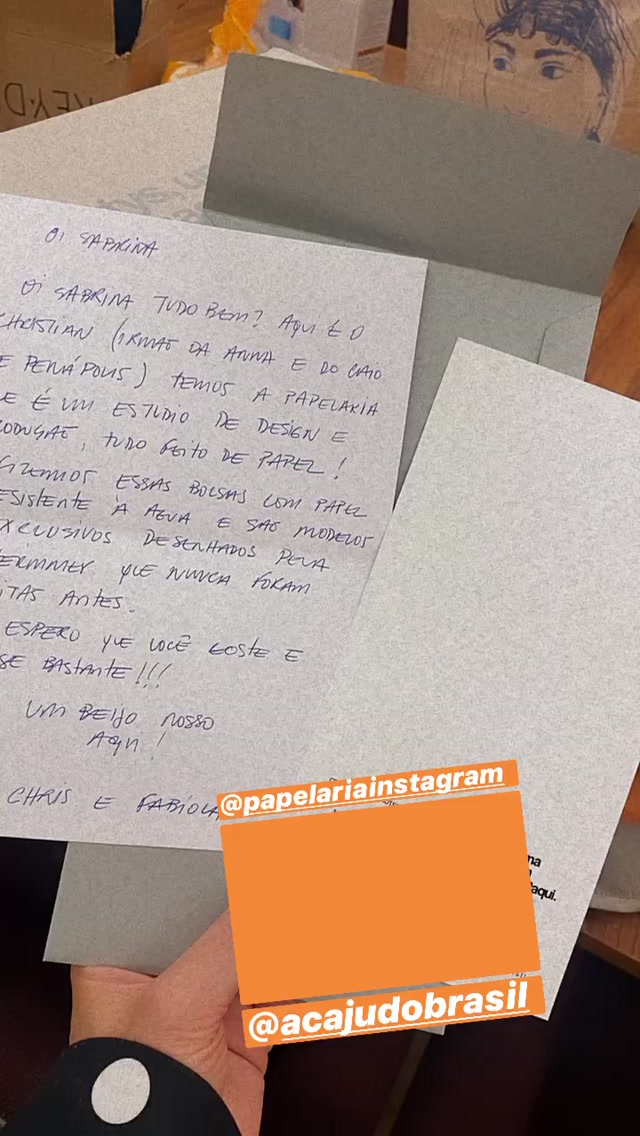 KEY·D
OI SABRINA
OI SABRINA TUDO BEM? AQUI É O
CHRISTIAN (IRMÃO DA ANNA E DO CAIO
E PENÁPOLIS) TEMOS A PAPELARIA
E É UM ESTÚDIO DE DESIGN E
ODUÇÃO, TUDO FEITO DE PAPEL!
FIZEMOS ESSAS BOLSAS COM PAPEL
ESISTENTE À AGUA E SÃO MODELOS
XCLUSIVOS DESENHADOS PELA
QUE NUNCA FORAM
ITAS ANTES.
ESPERO QUE VOCÊ GOSTE E
SE BASTANTE!!!
UM BEIJO NOSSO
AQUI!
CHRIS E FABIOLA
@papelariainstagram
na
aqui.
@acajudobrasil